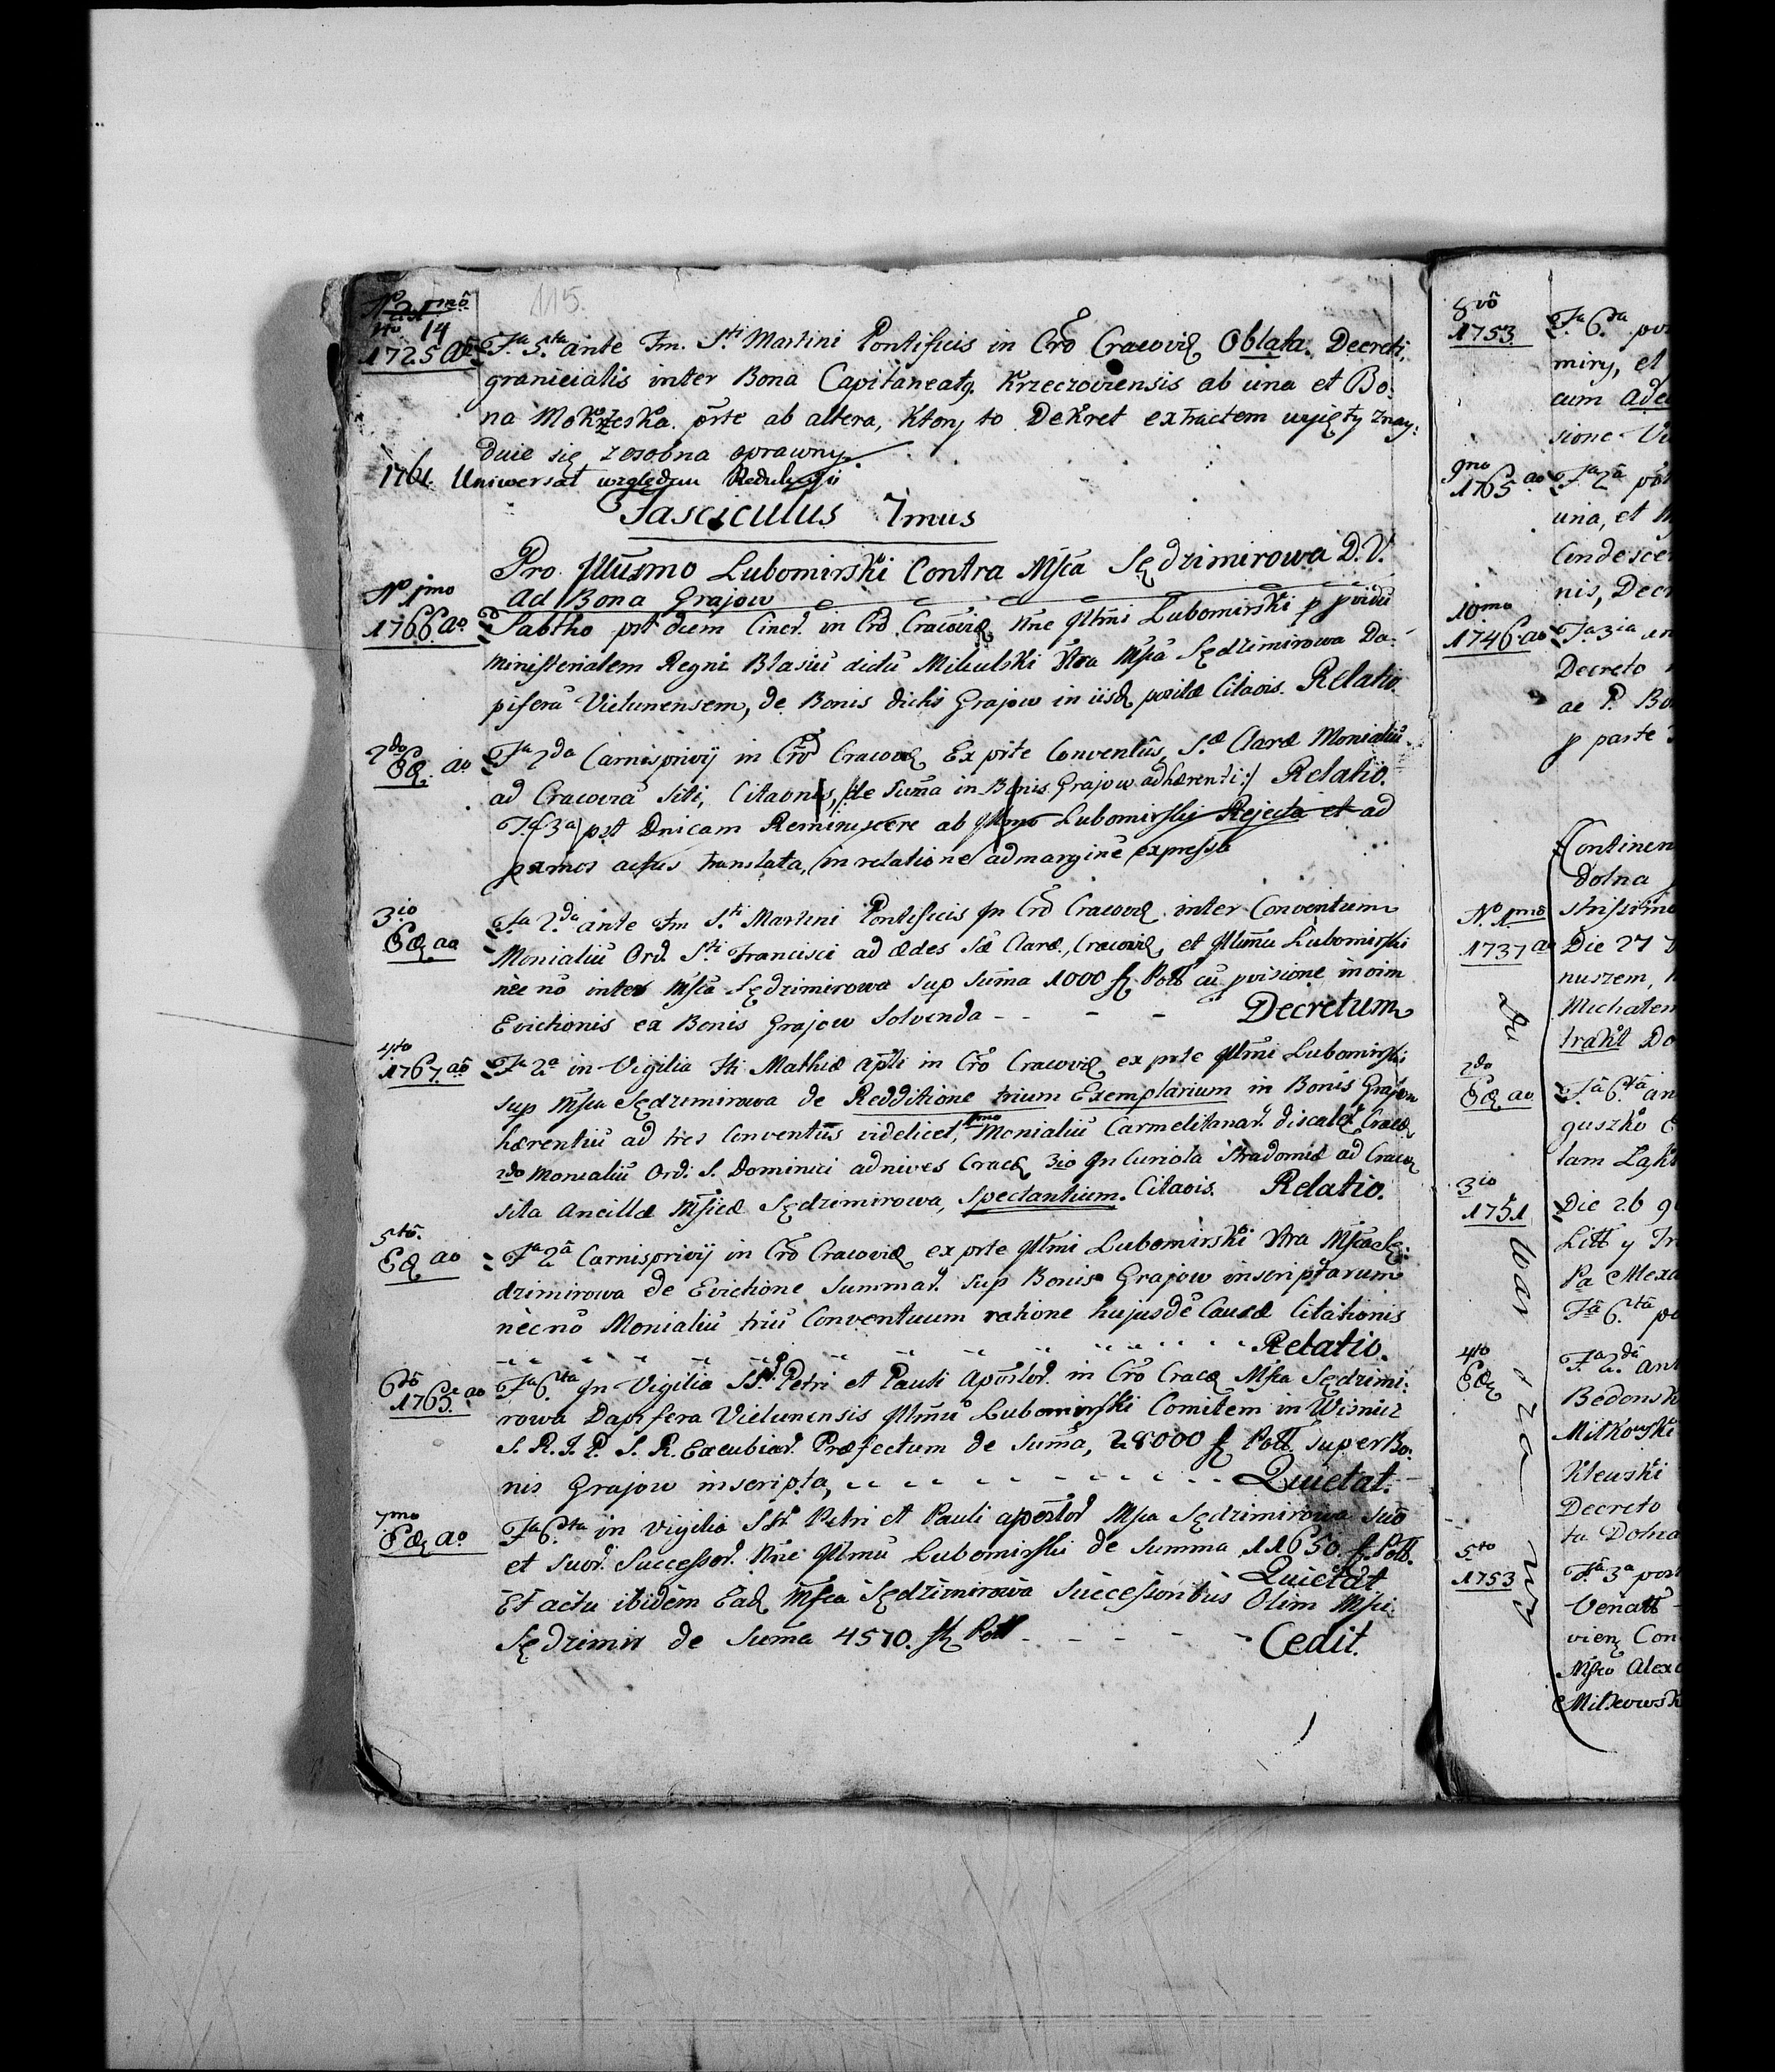 115.
14
1725 Aō Fa 5ta ante Fm. Sti Martini Pontificis in Cro Cracoviȩ Oblata. Decreti
granicialis inter Bona Capitaneatq. Krzeczoviensis ab una et Bo:
na Mokrzeska. prte ab altera, Ktory to Dekret extractem wyięty znay:
duie się zosobna oprawny.
1761. Uniwersał względem Redukcyi
Fasciculus 7mus
Pro Illusmo Lubomirski Contra Mfca Sędzimirowa D. V.
ad Bona Grajow
No 1mo
1766 ao Sabtho pst diem Cined. in Cro Cracoviȩ Nne Illmi Lubomirski p pvidu
ministerialem Regni Blasiu dictu Mikulski Ntra Mfca Sędzimirowa Da:
pifera Vielunensem, de Bonis dictis Grajow in iisdȩ positæ Citaois. Relatio.
2do Eȩ. ao Fa 2da Carnisprivij in Cro Cracovȩ Ex prte Conventûs S.æ Claræ Monialiu
ad Cracovia siti, Citaonis, de Suma in Bonis Grajow adhærenti:/ Relatio.
Fa 3a pst Dnicam Reminiscere ab Illmo Lubomirski Rejecta et ad
pximos actus translata, in relatione ad margine expressa
3io
Eȩ ao Fa 2da ante Fm Sti Martini Pontificis In Cro Cracovȩ inter Conventum
Monialiu Ord. Sti Francisci ad ædes Sæ Claræ, Cracoviȩ, et Illmu Lubomirski
nec no inter Mfca Sędzimirowa sup suma 1000 f Poll cu pvisione in oim
Evictionis ex Bonis Grajow Solvenda - - - - Decretum
4to
1767. ao Fa 2a in Vigilia Sti Mathiæ apli in Cro Cracoviȩ ex prte Illmi Lubomirski
sup Mfca Sędzimirowa de Redditione trium Exemplarium in Bonis Grajow
hærentiu ad tres Conventus videlicet, 1mo Monialiu Carmelitanar. discalct. Cracȩ
2do Monialiu Ord: S. Dominici ad nives Cracȩ 3io In Curiola Stradomiæ ad Cracoȩ
sita Ancillæ Mficæ Sędzimirowa, Spectantium. Citaois. Relatio.
5to.
Eȩ ao Fa 2a Carnisprivij in Cro Cracoviæ ex prte Illmi Lubomirski Ntra Mfca Sę:
dzimirowa de Evictione Summar. sup Bonis Grajow inscriptarum
necno Monialiu triu Conventuum ratione hujusdē Causæ Citationis
Relatio.
6to
1765 ao Fa 6ta In Vigilia SS. Petri et Pauli Apostol. in Cro Cracȩ Mfca Sędzimi:
rowa Dapifera Vielunensis Illmu Lubomirski Comitem in Wisnicz
S. R. I. P. S. R. Excubiar. Præfectum de Suma, 28000 f Poll. super Bo:
nis Grajow inscripta, - - - - Quietat.
7mo
Eȩ ao Fa 6ta in vigilia SS. Petri et Pauli apostol Mfca Sędzimirowa suo
et suor. Successor. Nne Illmu Lubomirski de Summa 11650. f. Poll.
Quietat
Et actu ibidem Eadȩ Mfca Sędzimirowa Successoribus Olim Mfci
Sędzimir de Suma 4570. f Poll - - - - Cedit.
8vo
1753. Fa 6ta
miry, et
cum
sione
9no
1765 ao Fa 2a
una, et
Condescen
nis, Decr
10mo
1746 ao Fa 3ia
Decreto
ae P.
p parte
Continen
dolna
No 1mo
1737 ao Die 27
nuszem,
Michałem
trakt Do
2do
Eȩ ao Fa 6ta an
guszko
tam
3io
1751 Die 26
Litt y
Pa Alexa
Fa 6ta
4to
Eȩ Fa 2da ant
Bedonsk
Miłkowski
Klewski
Decreto
ta Dolna
5to
1753 Fa 3a
Venatt
vienȩ Con
Mfco Alex
Miłkowsk